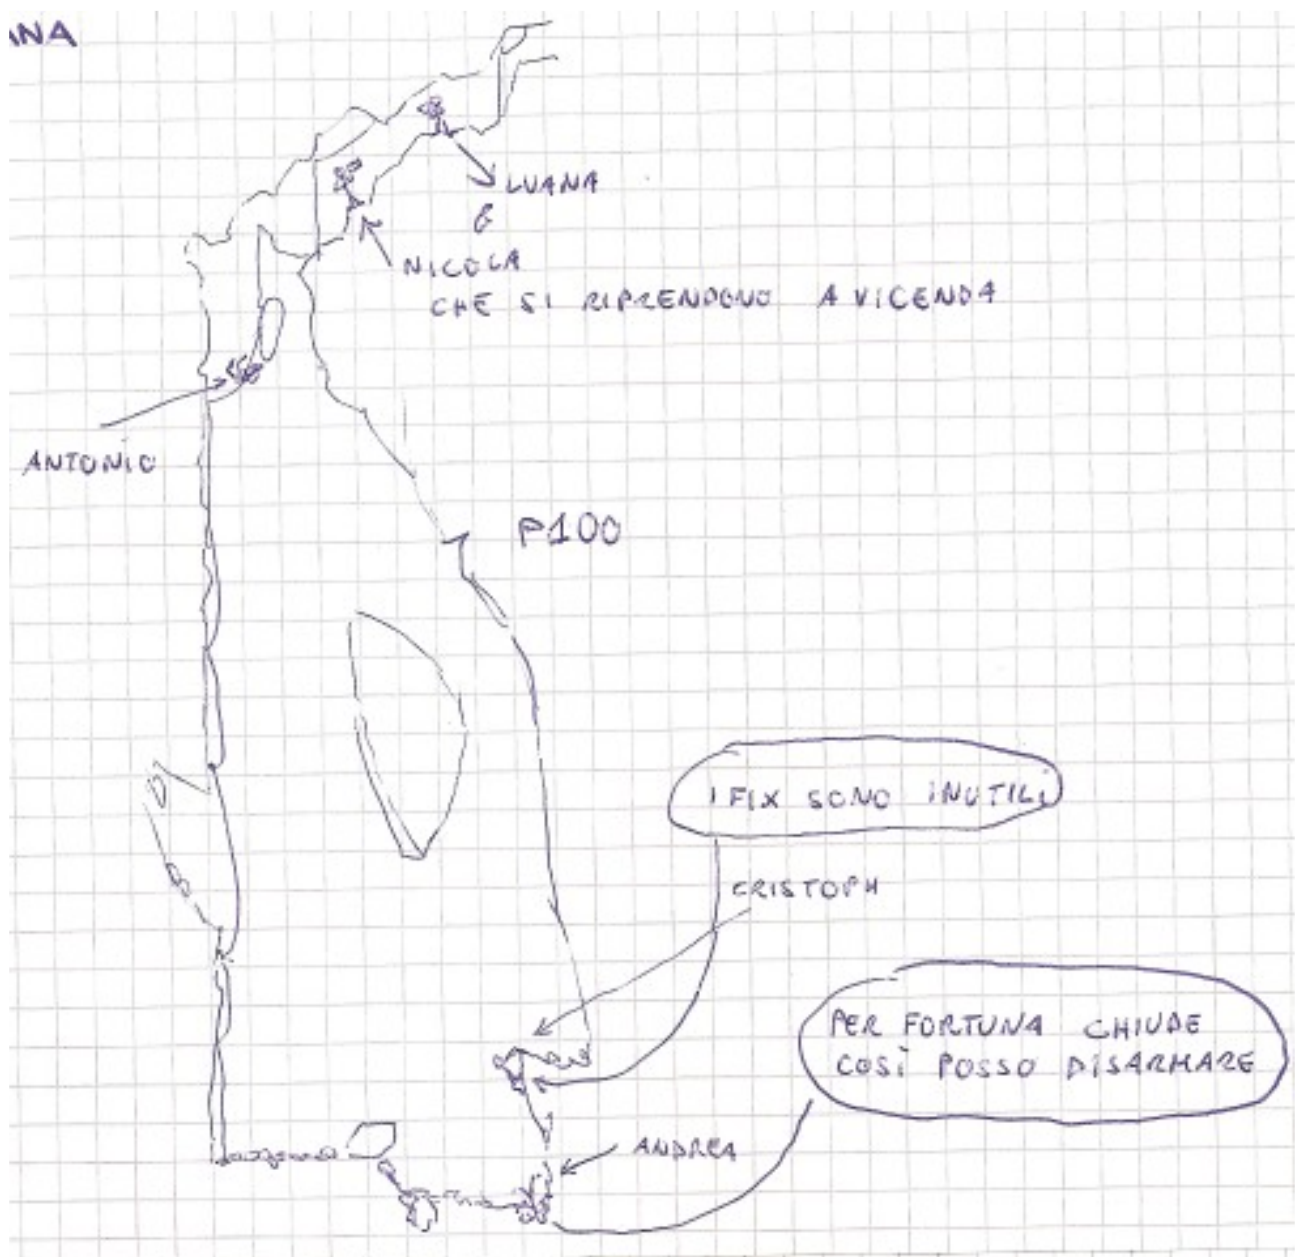 ANA
LUANA
E
NICOLA
CHE SI RIPRENDONO A VICENDA
ANTONIO
P100
I FIX SONO INUTILI
CRISTOPH
PER FORTUNA CHIUDE
COSÌ POSSO DISARMARE
ANDREA